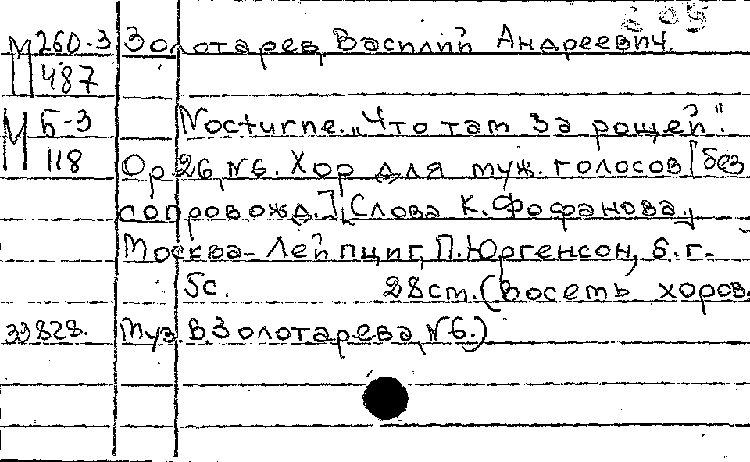 М 260-3 Золотарев, Василий Андреевич.
487
М Б-3 Nocturne. „Что там за рощей".
118 Op. 26, N6. Хор для муж. голосов [без
сопровожд.] [Слова К. Фофанова.]
Москва-Лейпциг, П. Юргенсон, б.г.
5с. 28ст. (Восемь хоров.
33828. Муз. В. Золотарева, N6.)